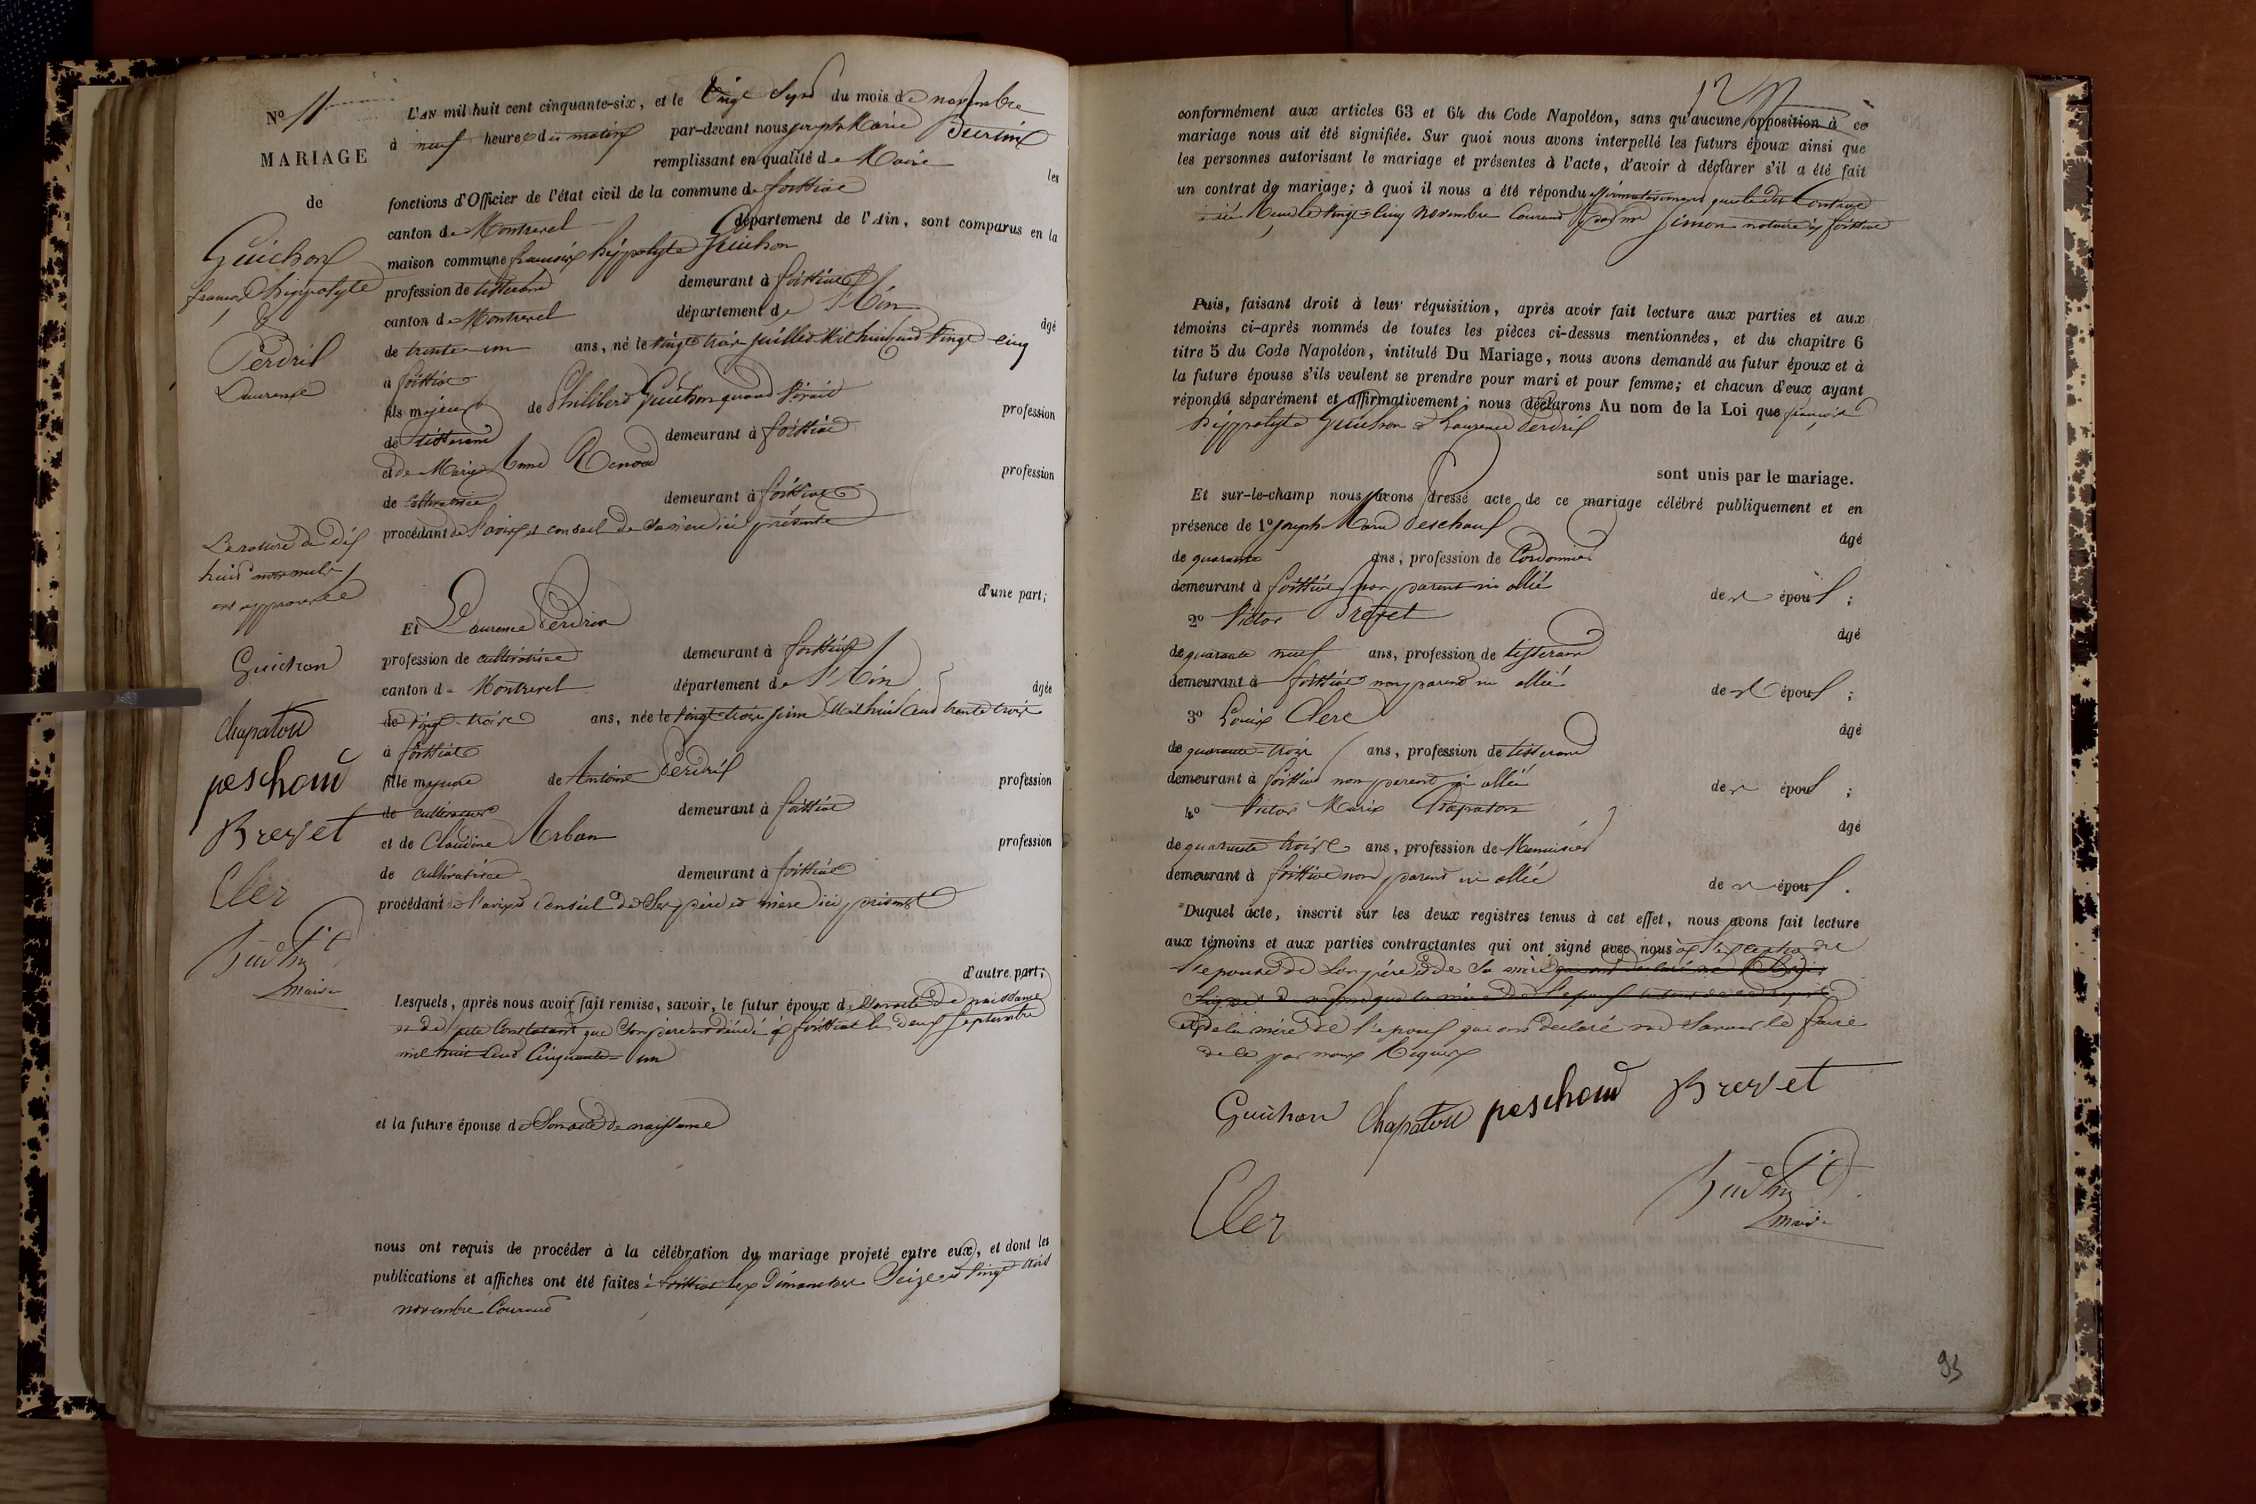 N° 11
MARIAGE
de
Guichon
françois hippolyte
&
Perdrix
Laurence
La rature de dix
huit mots nuls
est approuvée
Guichon
Chapaton
peschoud
Brevet
Cler
maire
L'AN mil huit cent cinquante-six, et le Vingt Sept du mois de novembre
à neuf heures du matin par-devant nous joseph Marie
remplissant en qualité de Maire les
fonctions d'Officier de l'état civil de la commune de foissiat
canton de Montrevel département de l'Ain, sont comparus en la
maison commune françois hippolyte Guichon
profession de tisserand demeurant à foissiat
canton de Montrevel département de l'Ain âgé
de trente-un ans, né le vingt trois juillet Mil huit cent vingt cinq
à foissiat
fils majeur de Philibert Guichon quand vivait profession
de tisserand demeurant à foissiat
et de Marie Anne Renoud profession
de cultivatrice demeurant à foissiat
procédant de l'avis et conseil de sa mère ici présente
d'une part;
Et Laurence Perdrix
profession de cultivatrice demeurant à foissiat
canton de Montrevel département de l'Ain âgée
de vingt-trois ans, née le vingt-trois juin Mil huit Cent trente trois
à foissiat
fille majeure de Antoine Perdrix profession
de cultivateur demeurant à foissiat
et de Claudine Arban profession
de cultivatrice demeurant à foissiat
procédant de l'avis et conseil de Ses père et mère ici présents
d'autre part;
Lesquels, après nous avoir fait remise, savoir, le futur époux de Son acte de naissance
et de acte Constatant que Son père est décédé à foissiat le deux Septembre
mil huit Cent Cinquante-un
et la future épouse de Son acte de naissance
nous ont requis de procéder à la célébration du mariage projeté entre eux, et dont les
publications et affiches ont été faites à foissiat les Dimanches Seize et vingt trois
novembre Courant
conformément aux articles 63 et 64 du Code Napoléon, sans qu'aucune opposition à ce
mariage nous ait été signifiée. Sur quoi nous avons interpellé les futurs époux ainsi que
les personnes autorisant le mariage et présentes à l'acte, d'avoir à déclarer s'il a été fait
un contrat de mariage; à quoi il nous a été répondu affirmativement que le dit Contrat
a été Reçu le vingt-Cinq Novembre Courant par me Simon notaire à foissiat
Puis, faisant droit à leur réquisition, après avoir fait lecture aux parties et aux
témoins ci-après nommés de toutes les pièces ci-dessus mentionnées, et du chapitre 6
titre 5 du Code Napoléon, intitulé Du Mariage, nous avons demandé au futur époux et à
la future épouse s'ils veulent se prendre pour mari et pour femme; et chacun d'eux ayant
répondu séparément et affirmativement; nous déclarons Au nom de la Loi que françois
hippolyte Guichon et Laurence Perdrix
sont unis par le mariage.
Et sur-le-champ nous avons dressé acte de ce mariage célébré publiquement et en
présence de 1° joseph Marie Peschoud âgé
de quarante ans, profession de Cordonnier
demeurant à foissiat non parent ni allié des époux;
2° Victor Brevet âgé
de quarante neuf ans, profession de tisserand
demeurant à foissiat non parent ni allié des époux;
3° Louis Clerc âgé
de quarante-trois ans, profession de tisserand
demeurant à foissiat non parent ni allié des époux;
4° Victor Marie Chapaton âgé
de quarante trois ans, profession de Menuisier
demeurant à foissiat non parent ni allié des époux.
Duquel acte, inscrit sur les deux registres tenus à cet effet, nous avons fait lecture
aux témoins et aux parties contractantes qui ont signé avec nous à l'exception de
l'épouse de Son père et de Sa mère
et de la mère de l'époux qui ont déclaré ne Savoir le faire
de ce par nous Requis
Guichon Chapaton peschoud Brevet
Cler
maire
93